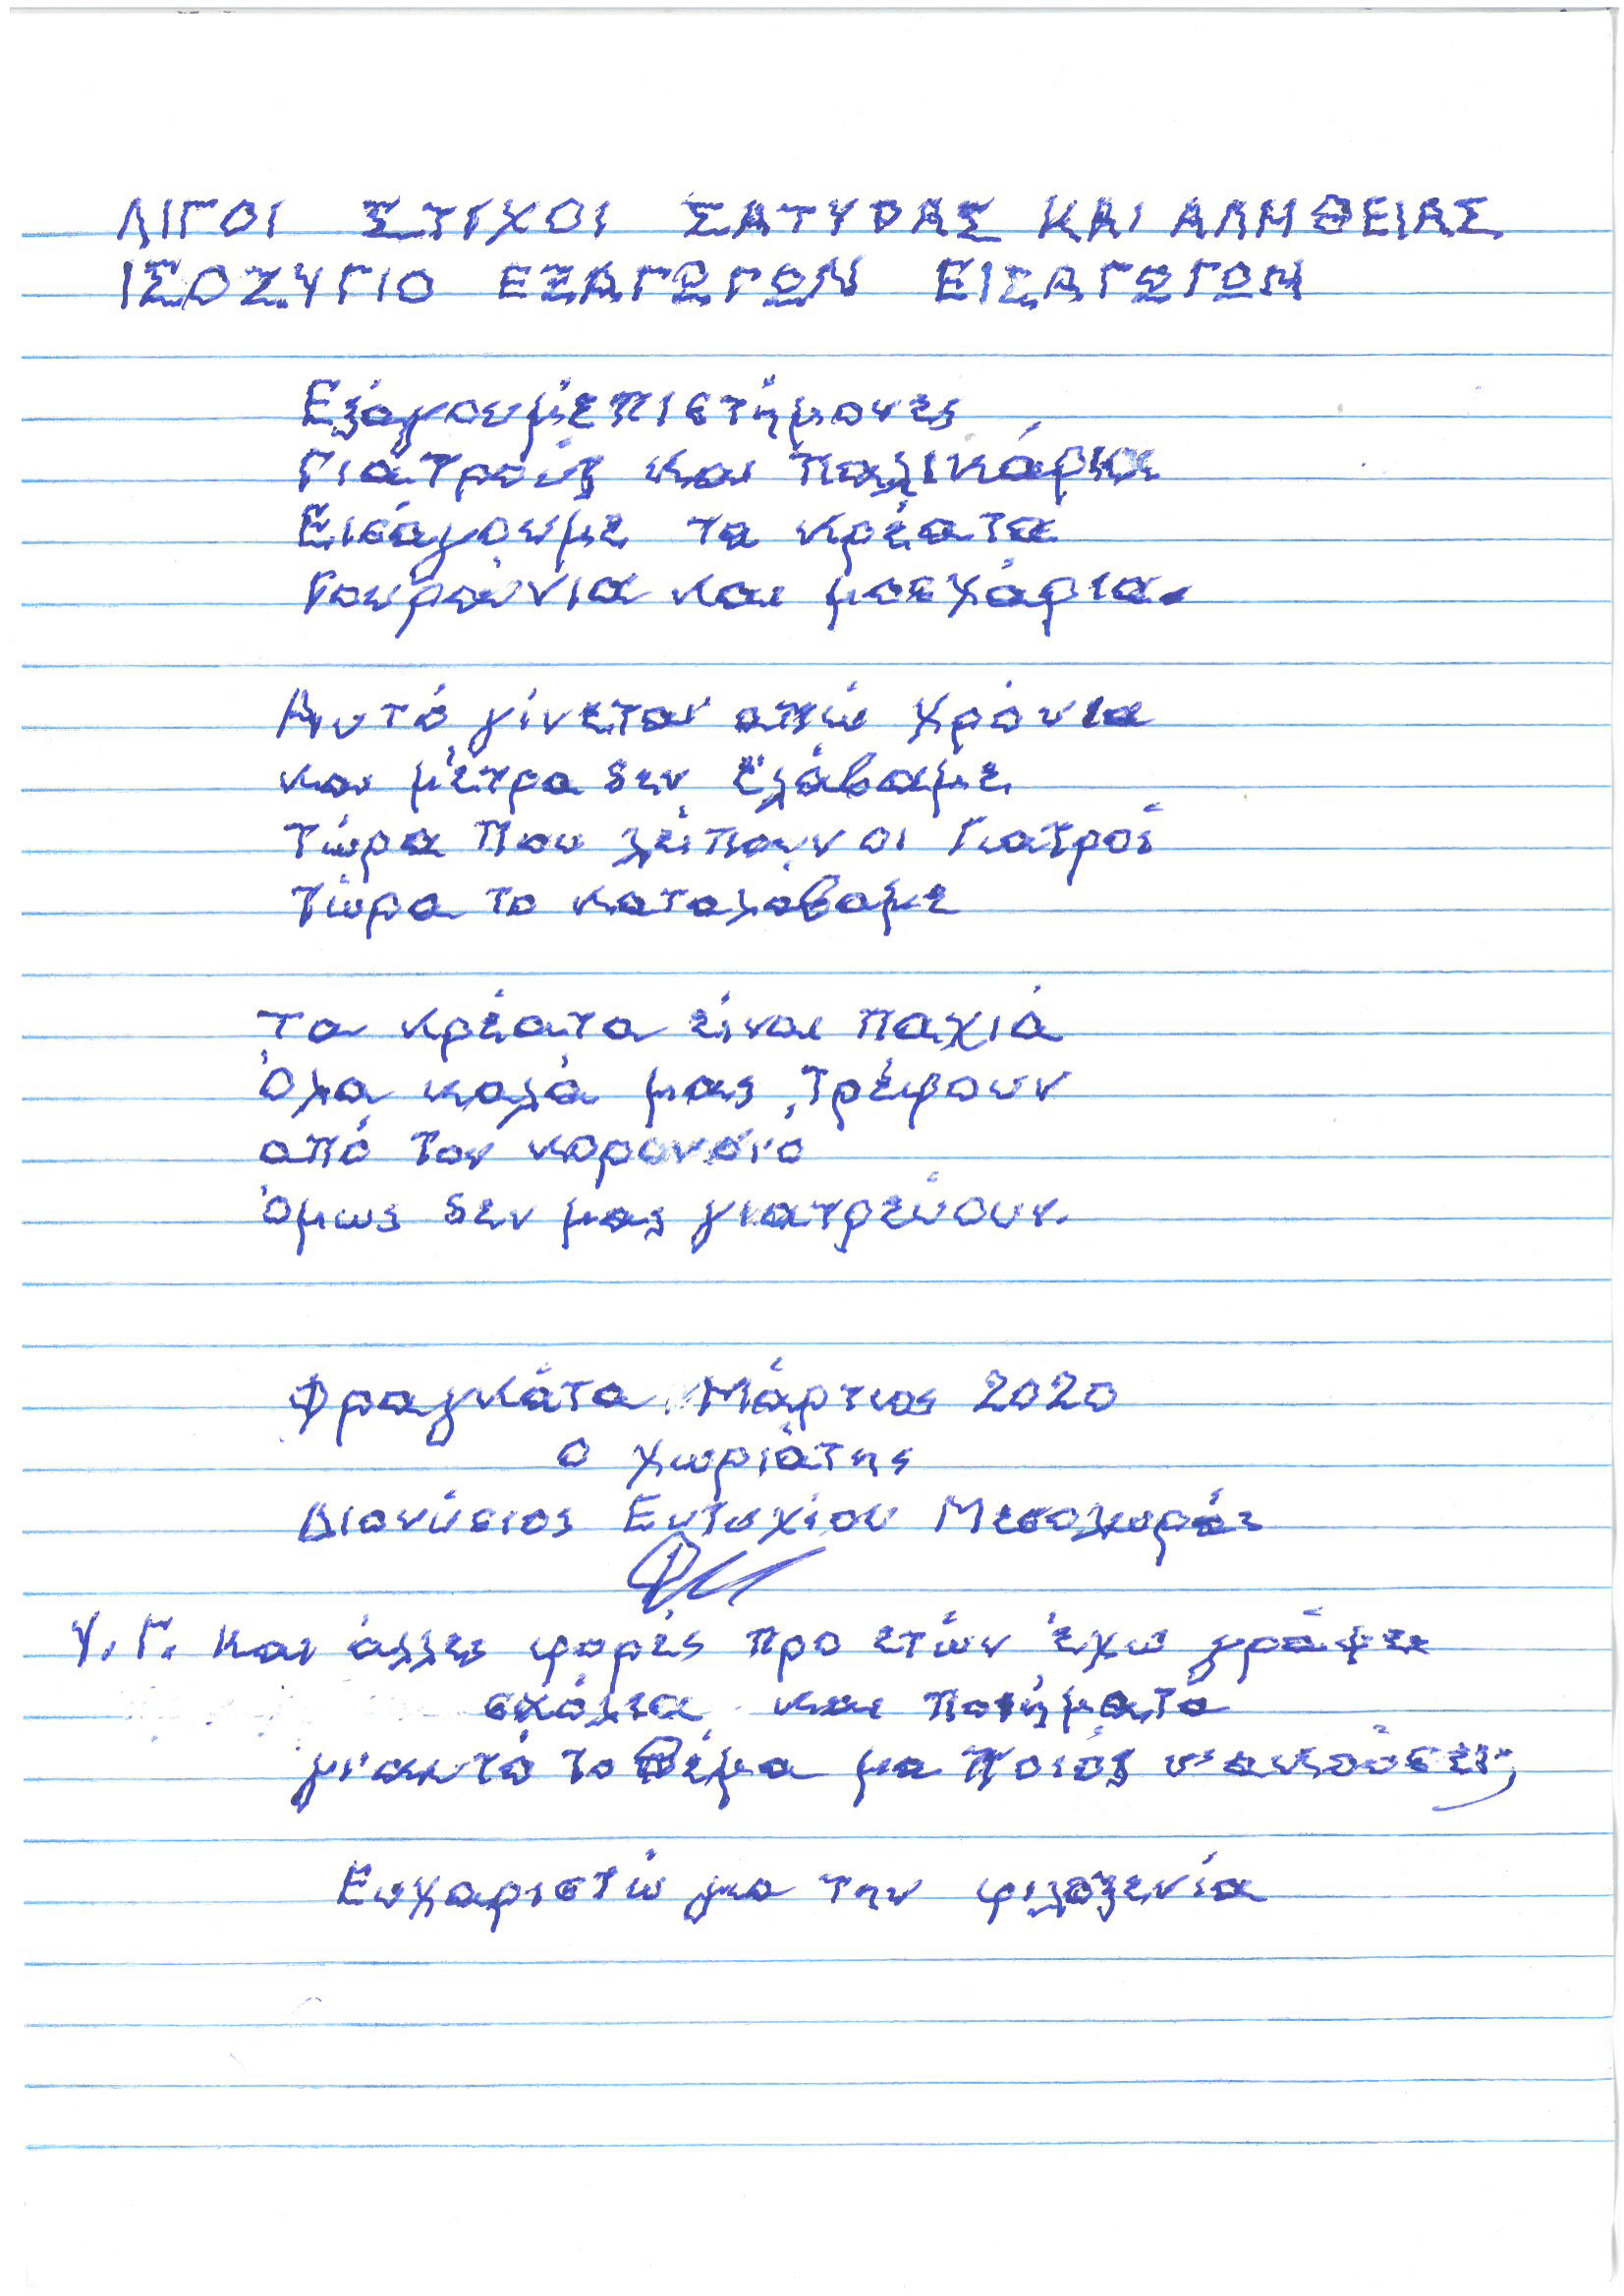 ΛΙΓΟΙ ΣΤΙΧΟΙ ΣΑΤΥΡΑΣ ΚΑΙ ΑΛΗΘΕΙΑΣ
ΙΣΟΖΥΓΙΟ ΕΞΑΓΩΓΩΝ ΕΙΣΑΓΩΓΩΝ
Εξάγουμε επιστήμονες
Γιατρούς και παλικάρια
Εισάγουμε τα κρέατα
Γουρούνια και μοσχάρια.
Αυτό γίνεται από χρόνια
και μέτρα δεν ελάβαμε
Τώρα που λείπουν οι Γιατροί
Τώρα το καταλάβαμε
Τα κρέατα είναι παχιά
Όλα καλά μας τρέφουν
από τον κορονοϊό
Όμως δεν μας γιατρεύουν.
Φραγκάτα Μάρτιος 2020
ο χωριάτης
Διονύσιος Ευτυχίου Μεσολωράς
Υ.Γ. Και άλλες φορές προ ετών έχω γράψει
σχόλια και ποιήματα
γι' αυτό το θέμα μα ποιός ν' ακούσει;
Ευχαριστώ για την φιλοξενία